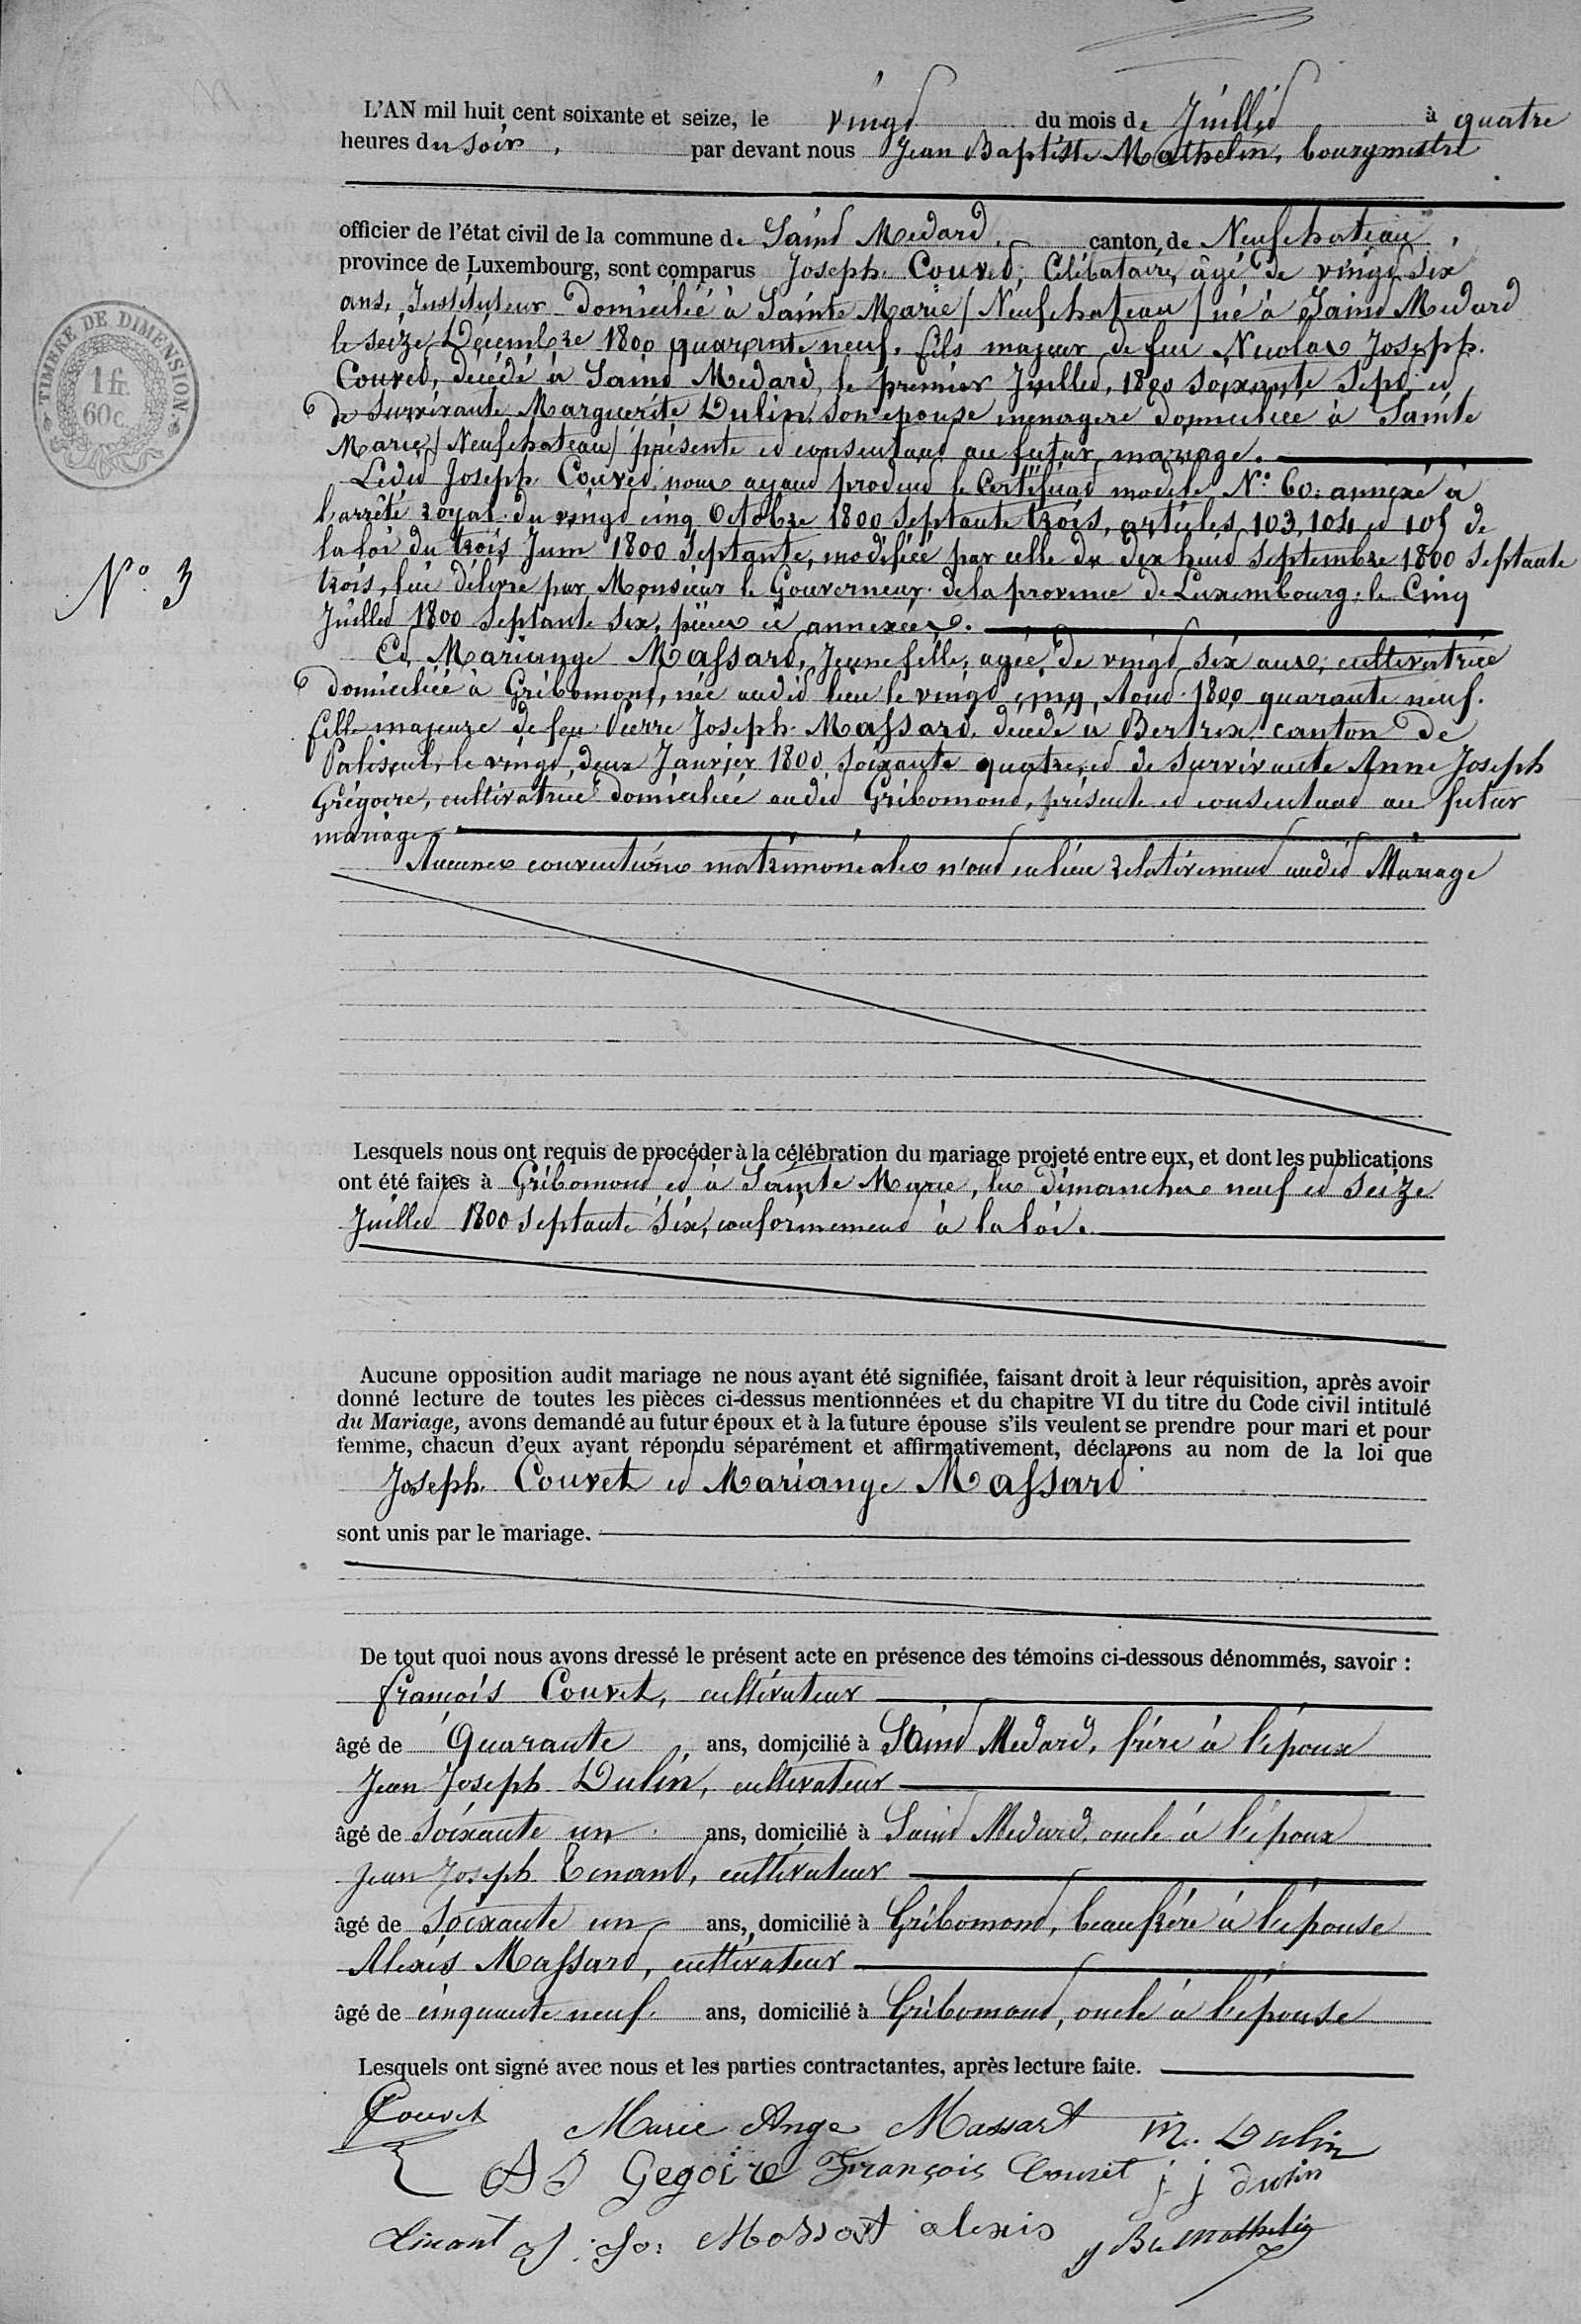 L'AN mil huit cent soixante et seize, le vingt du mois de Juillet à quatre
heures du soir, par devant nous Jean Baptiste Mathelin, bourgmestre
officier de l'état civil de la commune de Saint Medard, canton de Neufchateau,
province de Luxembourg, sont comparus Joseph Couvet, Célibataire, âgé de vingt six
ans, Instituteur domicilié à Sainte Marie / Neufchateau / né à Saint Medard
le seize Décembre 1800 quarante neuf, fils majeur de feu Nicolas Joseph
Couvet, décédé à Saint Medard, le premier Juillet, 1800 soixante sept, et
de survivante Marguerite Dulin, son épouse ménagère domiciliée à Sainte
Marie / Neufchateau / présente et consentant au futur mariage.
Ledit Joseph Couvet, nous ayant produit le Certificat modele N° 60, annexé à
l'arrêté royal du vingt cinq Octobre 1800 septante trois, articles 103, 104 et 105 de
la loi du trois Juin 1800 septante, modifiée par celle du dix huit Septembre 1800 septante
trois, lui délivré par Monsieur le Gouverneur de la province de Luxembourg, le Cinq
Juillet 1800 septante six, pièces ci annexées.
Et Mariange Massard, Jeune fille, agée de vingt six ans, cultivatrice
domiciliée à Gribomont, née audit lieu le vingt cinq Aout 1800 quarante neuf.
fille majeure de feu Pierre Joseph Massard, décédé à Bertrix canton de
Paliseul, le vingt deux Janvier 1800 soixante quatre, et de survivante Anne Joseph
Grégoire, cultivatrice domiciliée audit Gribomont, présente et consentant au futur
mariage
Aucunes conventions matrimoniales n'ont eu lieu relativement audit Mariage
Lesquels nous ont requis de procéder à la célébration du mariage projeté entre eux, et dont les publications
ont été faites à Gribomont et à Sainte Marie, les dimanches neuf et seize
Juillet 1800 septante six, conformément à la loi.
Aucune opposition audit mariage ne nous ayant été signifiée, faisant droit à leur réquisition, après avoir
donné lecture de toutes les pièces ci-dessus mentionnées et du chapitre VI du titre du Code civil intitulé
du Mariage, avons demandé au futur époux et à la future épouse s'ils veulent se prendre pour mari et pour
femme, chacun d'eux ayant répondu séparément et affirmativement, déclarons au nom de la loi que
Joseph Couvet et Mariange Massard
sont unis par le mariage.
De tout quoi nous avons dressé le présent acte en présence des témoins ci-dessous dénommés, savoir :
François Couvet, cultivateur
âgé de Quarante ans, domicilié à Saint Medard, frère à l'époux
Jean Joseph Dulin, cultivateur
âgé de soixante un ans, domicilié à Saint Medard, oncle à l'époux
Jean Joseph Tinant, cultivateur
âgé de soixante un ans, domicilié à Gribomont, beaufrère à l'épouse
Alexis Massard, cultivateur
âgé de cinquante neuf ans, domicilié à Gribomont, oncle à l'épouse
Lesquels ont signé avec nous et les parties contractantes, après lecture faite.
Couvet Marie Ange Massart M. Dulin
A J Gegoire François Couvet j j dulin
Tinant J. Jo: Massart alexis J Bte Mathelin
TIMBRE DE DIMENSION
1 fr.
60 c.
N° 3